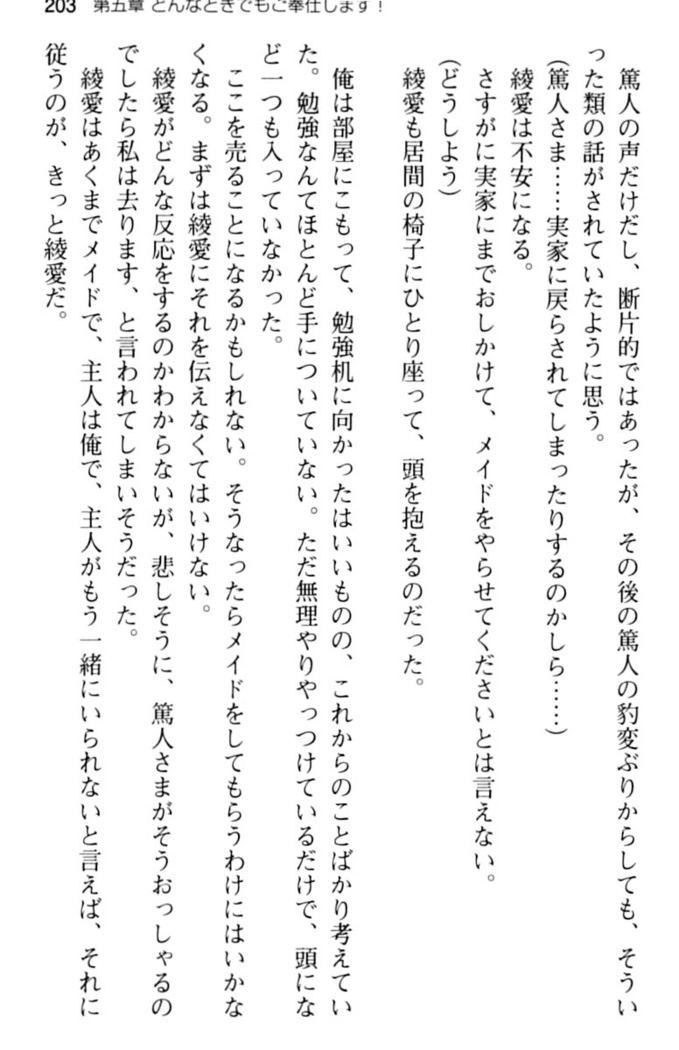 203 第五章 どんなときでもご奉仕します！
　篤人の声だけだし、断片的ではあったが、その後の篤人の豹変ぶりからしても、そうい
った類の話がされていたように思う。
（篤人さま……実家に戻らされてしまったりするのかしら……）
　綾愛は不安になる。
　さすがに実家にまでおしかけて、メイドをやらせてくださいとは言えない。
（どうしよう）
　綾愛も居間の椅子にひとり座って、頭を抱えるのだった。
　俺は部屋にこもって、勉強机に向かったはいいものの、これからのことばかり考えてい
た。勉強なんてほとんど手についていない。ただ無理やりやっつけているだけで、頭にな
ど一つも入っていなかった。
　ここを売ることになるかもしれない。そうなったらメイドをしてもらうわけにはいかな
くなる。まずは綾愛にそれを伝えなくてはいけない。
　綾愛がどんな反応をするのかわからないが、悲しそうに、篤人さまがそうおっしゃるの
でしたら私は去ります、と言われてしまいそうだった。
　綾愛はあくまでメイドで、主人は俺で、主人がもう一緒にいられないと言えば、それに
従うのが、きっと綾愛だ。